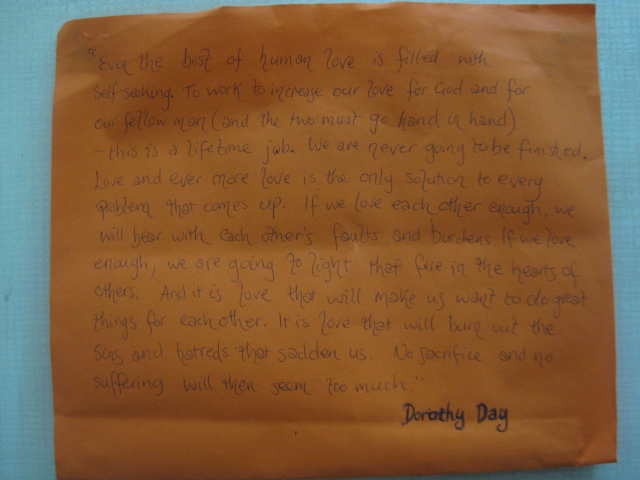 "Even the best of human love is filled with
self-seeking. To work to increase our love for God and for
our fellow man (and the two must go hand in hand)
- this is a lifetime job. We are never going to be finished.
Love and ever more love is the only solution to every
problem that comes up. If we love each other enough, we
will bear with each other's faults and burdens. If we love
enough, we are going to light that fire in the hearts of
others. And it is love that will make us want to do great
things for each other. It is love that will burn out the
sins and hatreds that sadden us. No sacrifice and no
suffering will then seem too much."
Dorothy Day